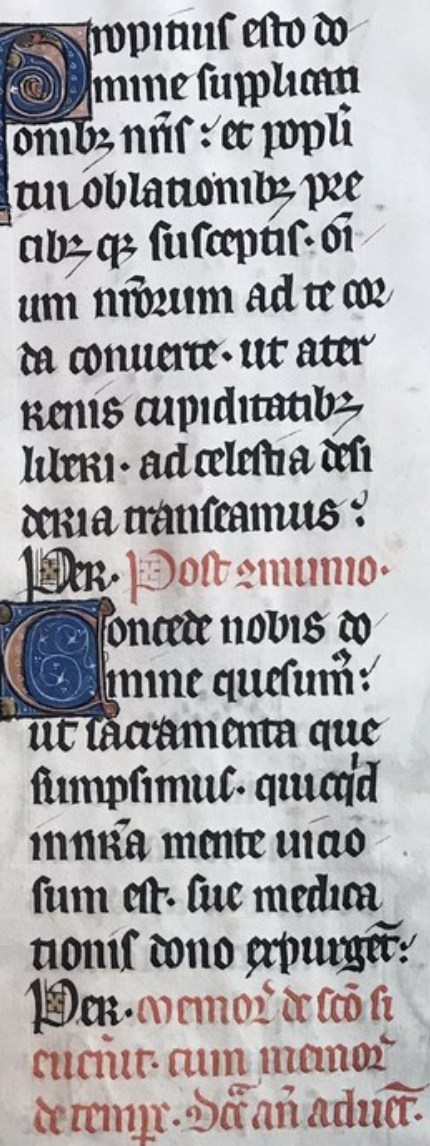 Propitius esto do
mine supplicati
onibꝫ nr̄is : et popli̅
tui oblationibꝫ pre
cibꝫ qꝫ susceptis · oī
um nr̄orum ad te cor
da conuerte · ut ater
renis cupiditatibꝫ
liberi · ad celestia desi
deria transeamus :
Per · Post ꝯmunio ·
Concede nobis do
mine quesumꝰ :
ut sacramenta que
sumpsimus · quicqͥd
in nr̄a mente uicio
sum est · sue medica
tionis dono expurget̄ :
Per · memor̄ de sc̄o si
euen̄it · cum memor̄
de temp̄r · Dc̄a an̄ aduet̄ ·